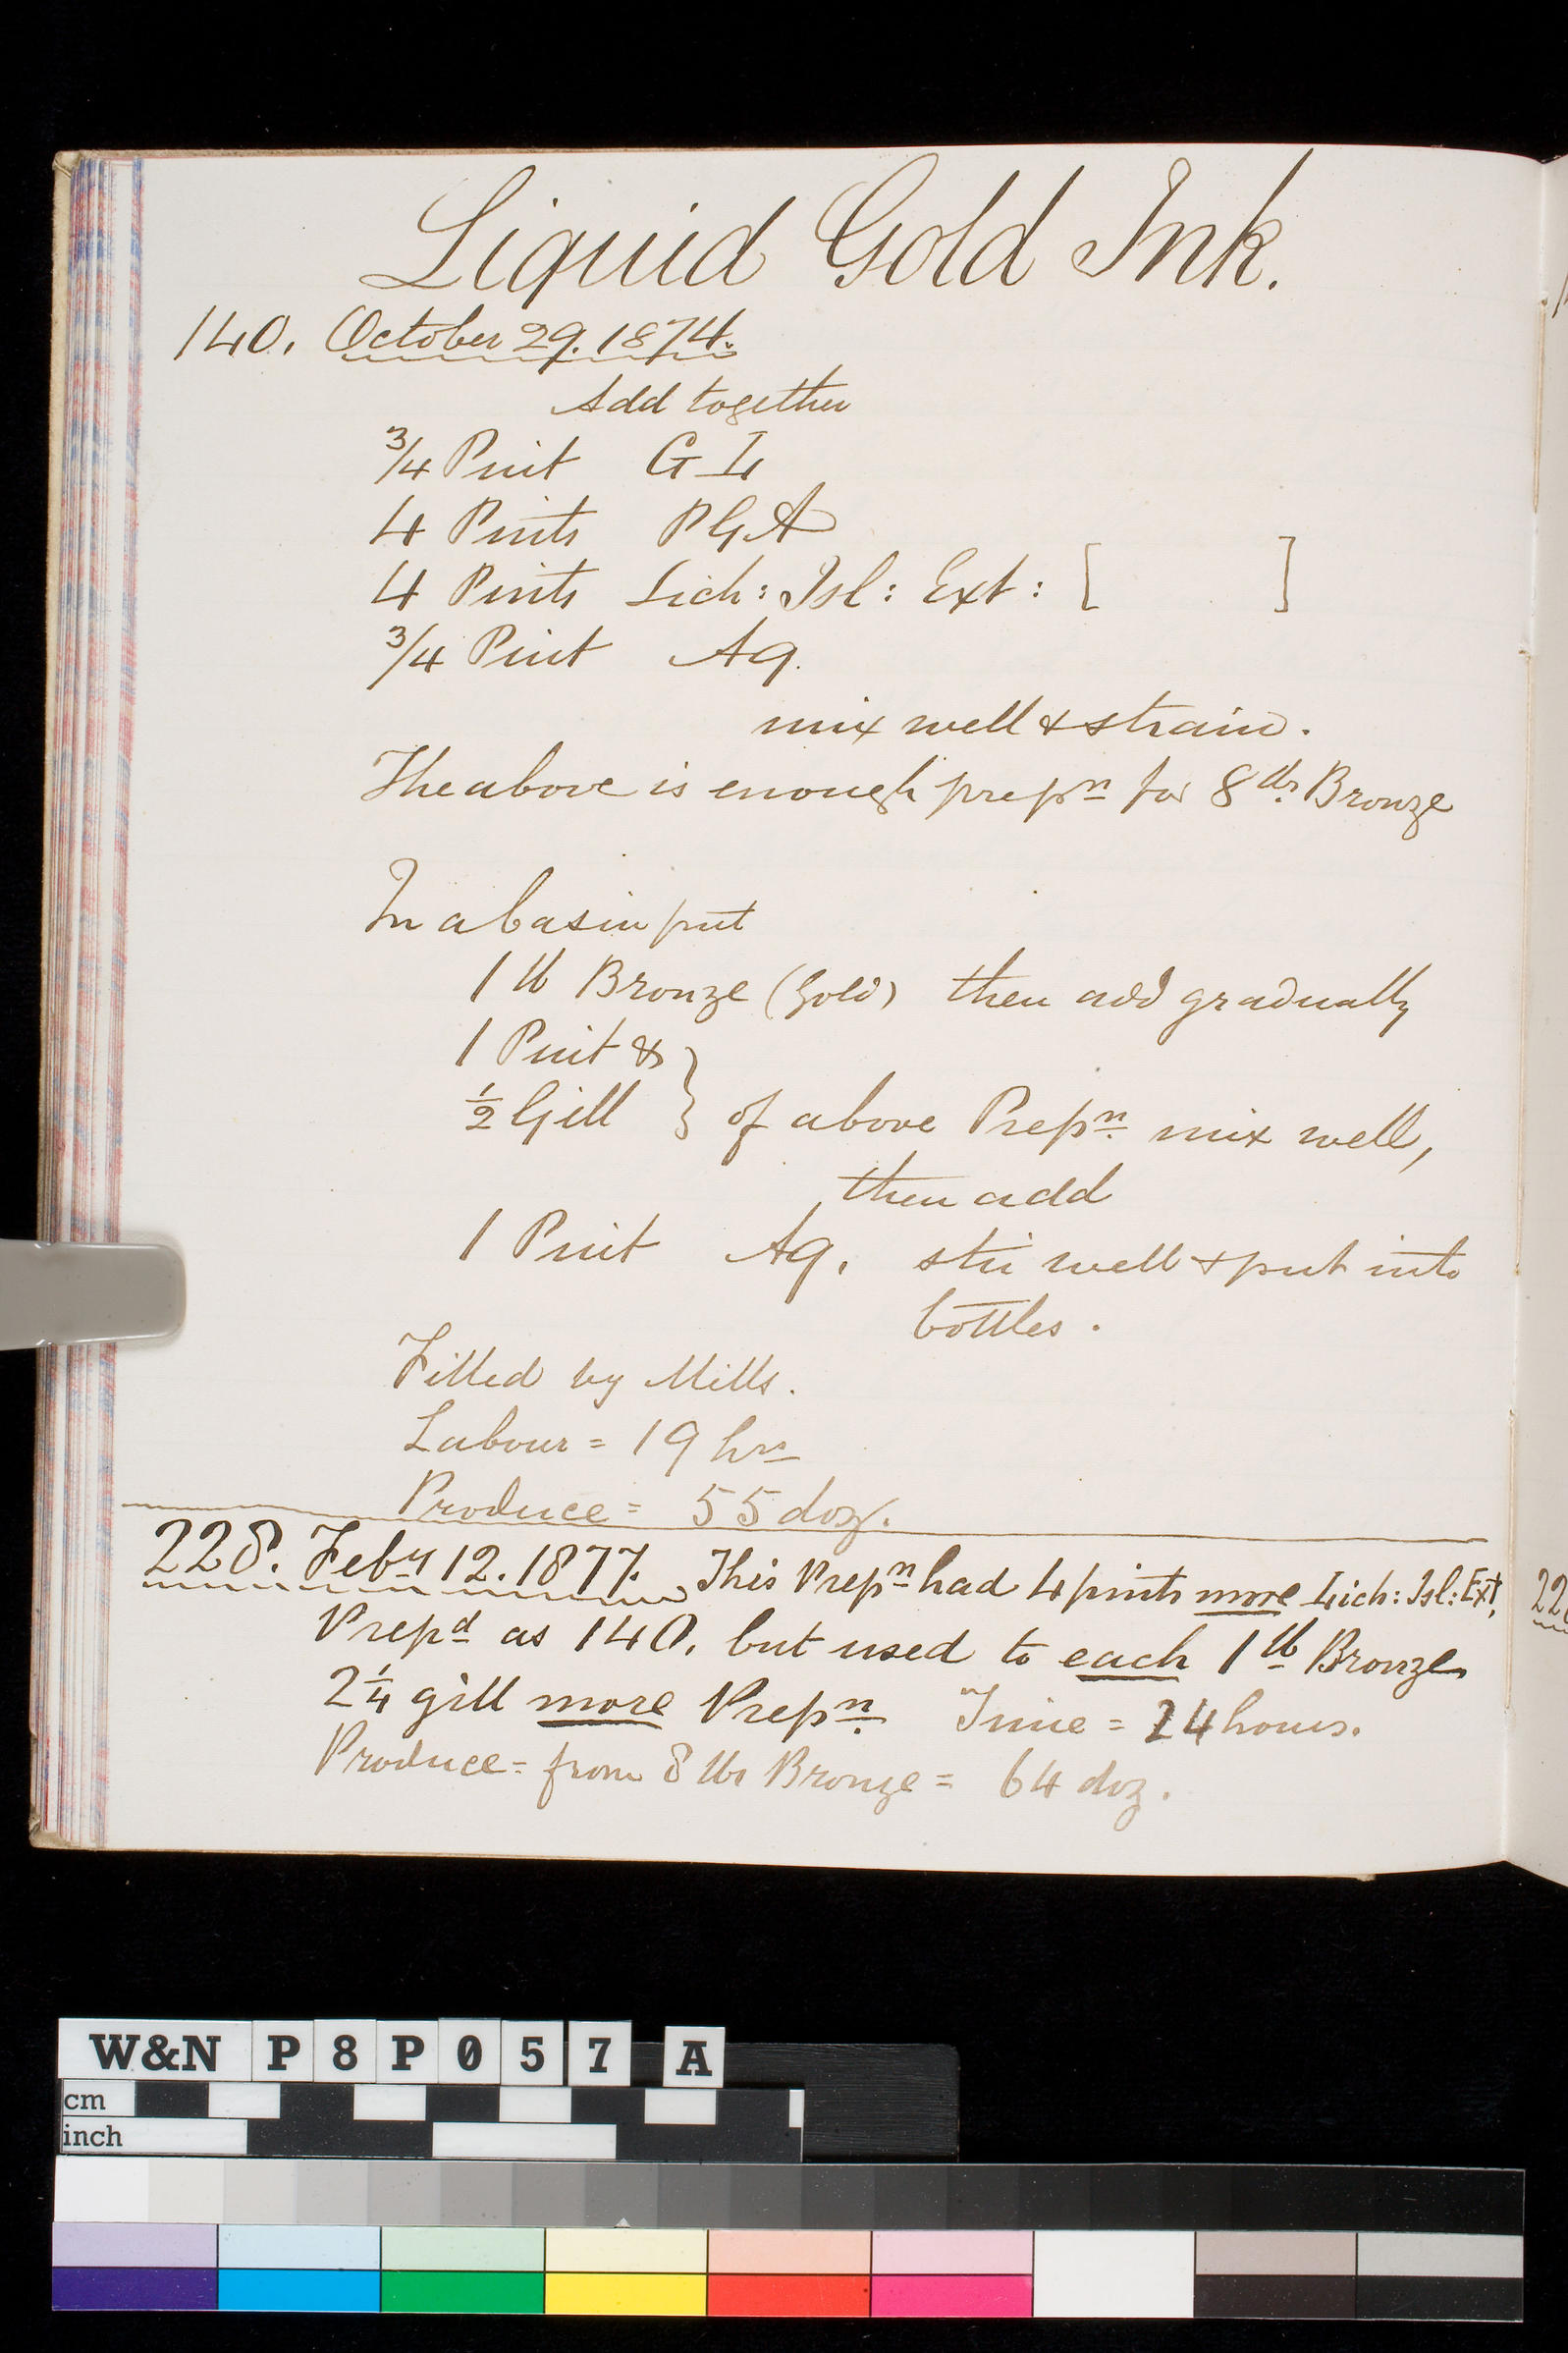 Liquid Gold Ink.
140. October 29. 1874.
Add together
3/4 Pint G L
4 Pints PGA
4 Pints Lich: Isl: Ext: [ ]
3/4 Pint Aq.
mix well & strain.
The above is enough prepn for 8 lbs Bronze
In a basin put
1 lb Bronze (Gold) then add gradually
1 Pint &
1/2 Gill } of above Prepn. mix well,
then add
1 Pint Aq. stir well & put into
bottles.
Filled by Mills.
Labour = 19 hrs
Produce = 55 doz.
228. Feby 12. 1877. This Prepn had 4 pints more Lich: Isl: Ext.
Prepd as 140. but used to each 1 lb Bronze
2 1/4 gill more Prepn. Time = 24 hours.
Produce = from 8 lbs Bronze = 64 doz.
W&N P8P057 A
cm
inch